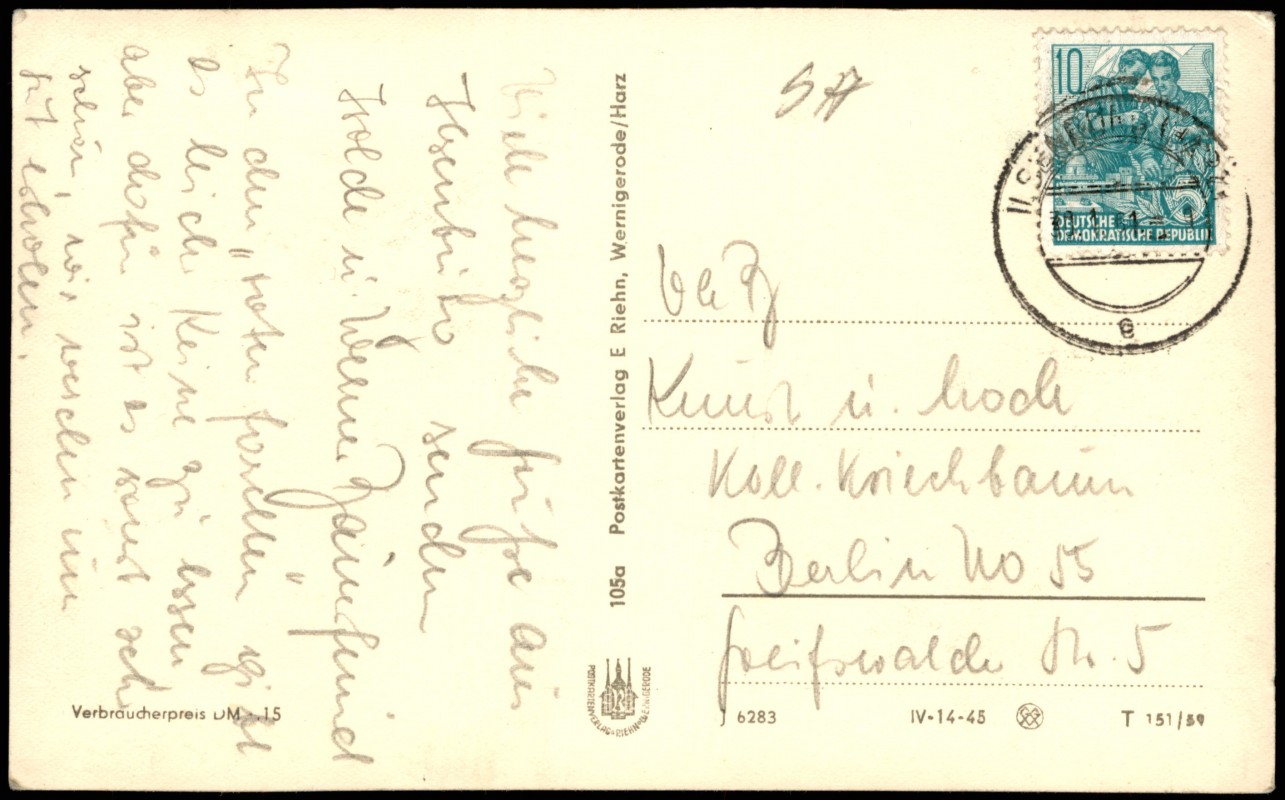 Viele herzliche Grüße aus
Ilsenburg senden
Isolde u. Werner
In den "roten Forellen" gibt
es leider keine zu essen
aber dafür ist es sonst sehr
schön, wir werden uns
gut erholen.
105a Postkartenverlag E Riehn, Wernigerode/Harz
POSTKARTENVERLAG RIEHN WERNIGERODE
Verbraucherpreis DM -.15
10
5
DEUTSCHE
DEMOKRATISCHE REPUBLIK
ILSENBURG (HARZ)
e
VEB
Kunst u. Mode
Koll. Kriechbaum
Berlin NO 55
Greifswalder Str. 5
J 6283
IV-14-45
T 151/59